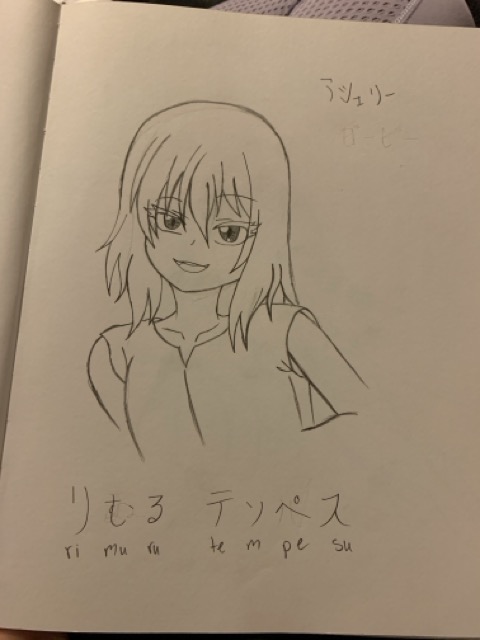 アシェリー
りむる テンペス
ri mu ru te m pe su